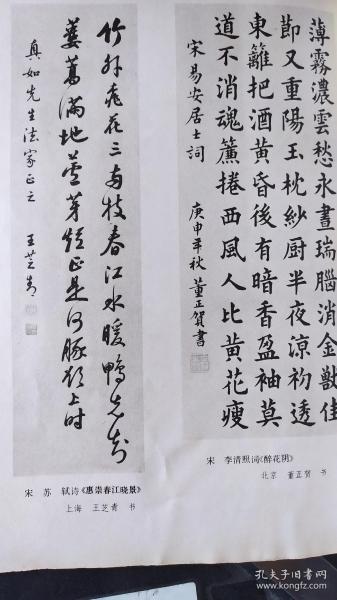 薄霧濃雲愁永晝瑞腦消金獸佳
節又重陽玉枕紗厨半夜涼初透
東籬把酒黃昏後有暗香盈袖莫
道不消魂簾捲西風人比黃花瘦
宋易安居士詞
庚申年秋董正賀書
宋 李清照词《醉花阴》
北京 董正贺 书
竹外桃花三両枝春江水暖鴨先知
蔞蒿滿地蘆芽短正是河豚欲上时
真如先生法家正之
王芝青
宋 苏 轼诗《惠崇春江晓景》
上海 王芝青 书
孔夫子旧书网